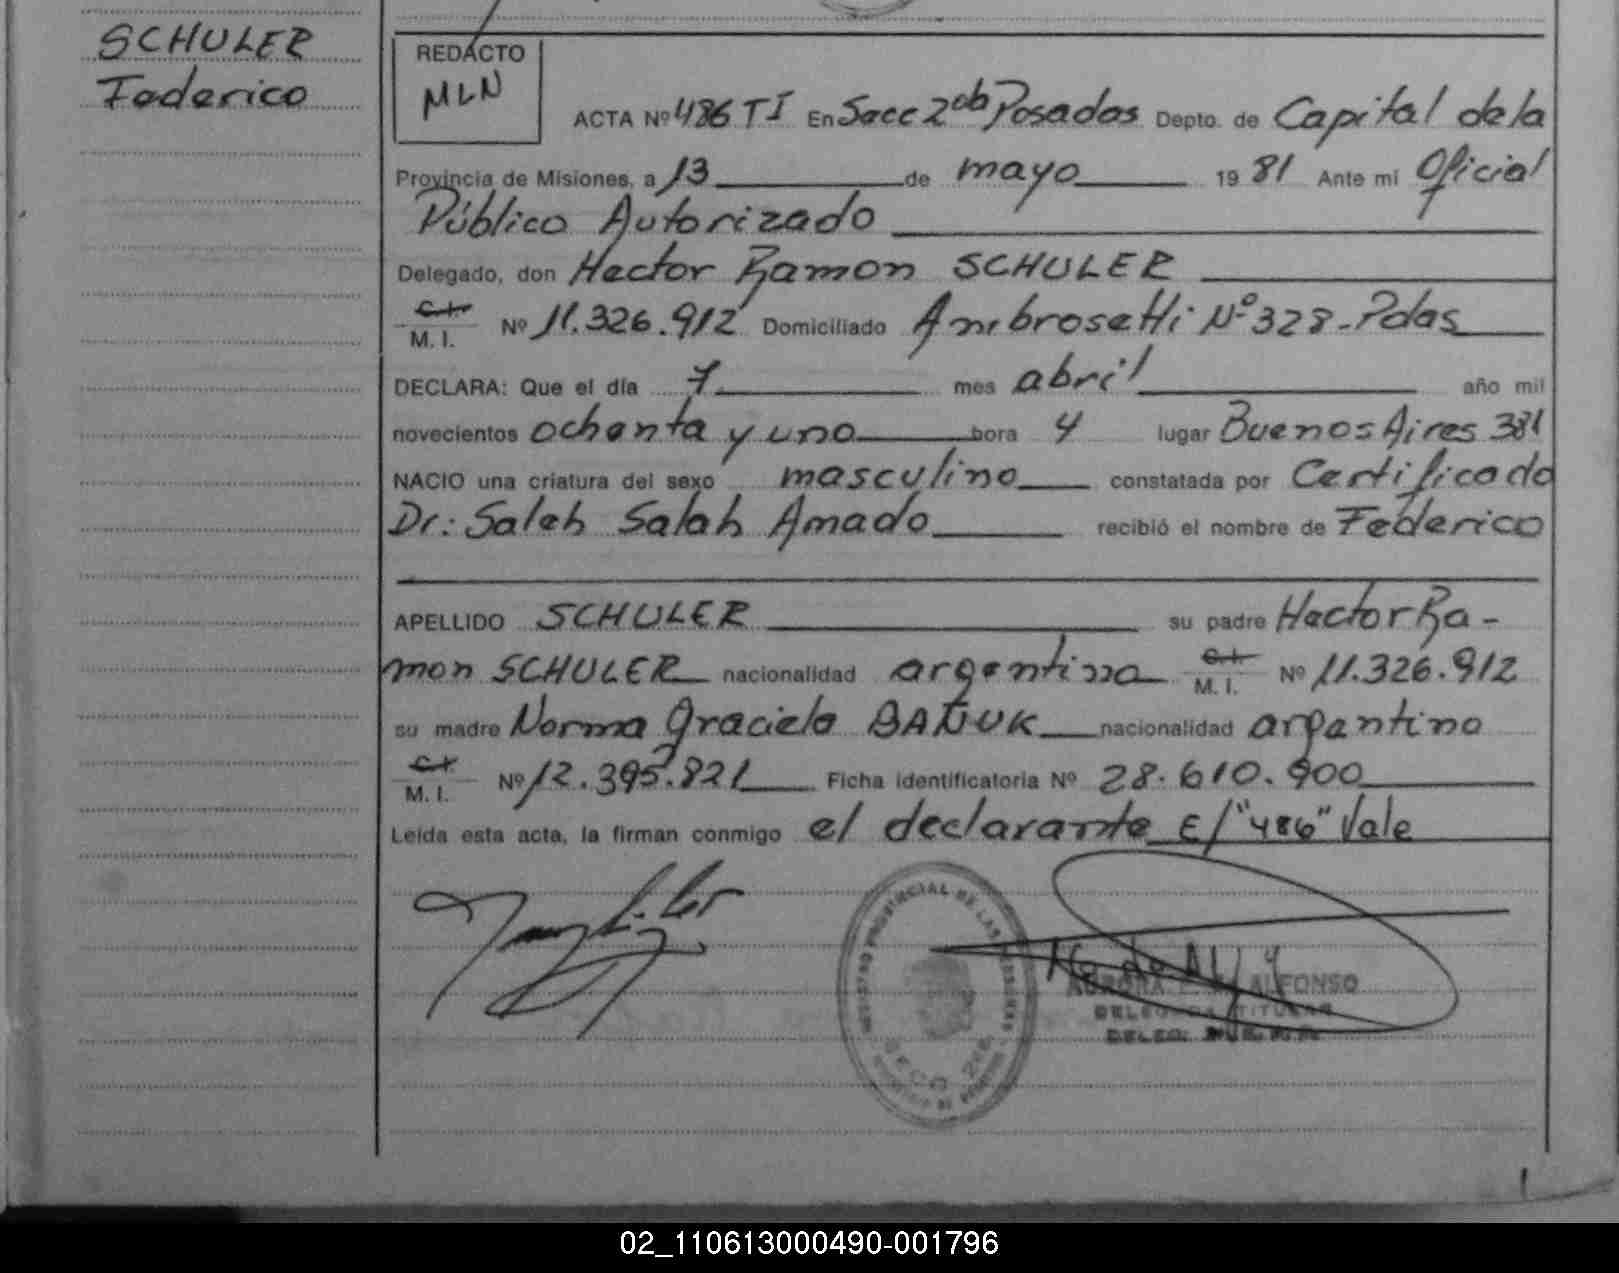 SCHULER
Federico
REDACTO
MLN
ACTA Nº 486 TI En Secc 2da Posadas Depto. de Capital de la
Provincia de Misiones, a 13 de mayo 19 81 Ante mi Oficial
Público Autorizado
Delegado, don Hector Ramon SCHULER
C.I.
M. I. Nº 11.326.912 Domiciliado Ambrosetti Nº 328-Pdas
DECLARA: Que el día 7 mes abril año mil
novecientos ochenta y uno hora 4 lugar Buenos Aires 381
NACIO una criatura del sexo masculino constatada por Certificado
Dr: Saleh Salah Amado recibió el nombre de Federico
APELLIDO SCHULER su padre Hector Ra-
mon SCHULER nacionalidad argentina C.I. M. I. Nº 11.326.912
su madre Norma Graciela BAÑUK nacionalidad argentina
C.I.
M. I. Nº 12.395.821 Ficha identificatoria Nº 28.610.900
Leída esta acta, la firman conmigo el declarante E/"486" Vale
REGISTRO PROVINCIAL DE LAS PERSONAS
AURORA ALFONSO
DELEGADA TITULAR
02_110613000490-001796